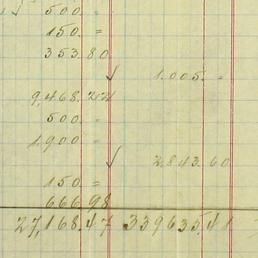 500. =
150. =
353.80
√ 1.005. =
9,468.24
500. =
1.900 =
√ 2,843.60
150. =
666.98
27,168.47 339635.41